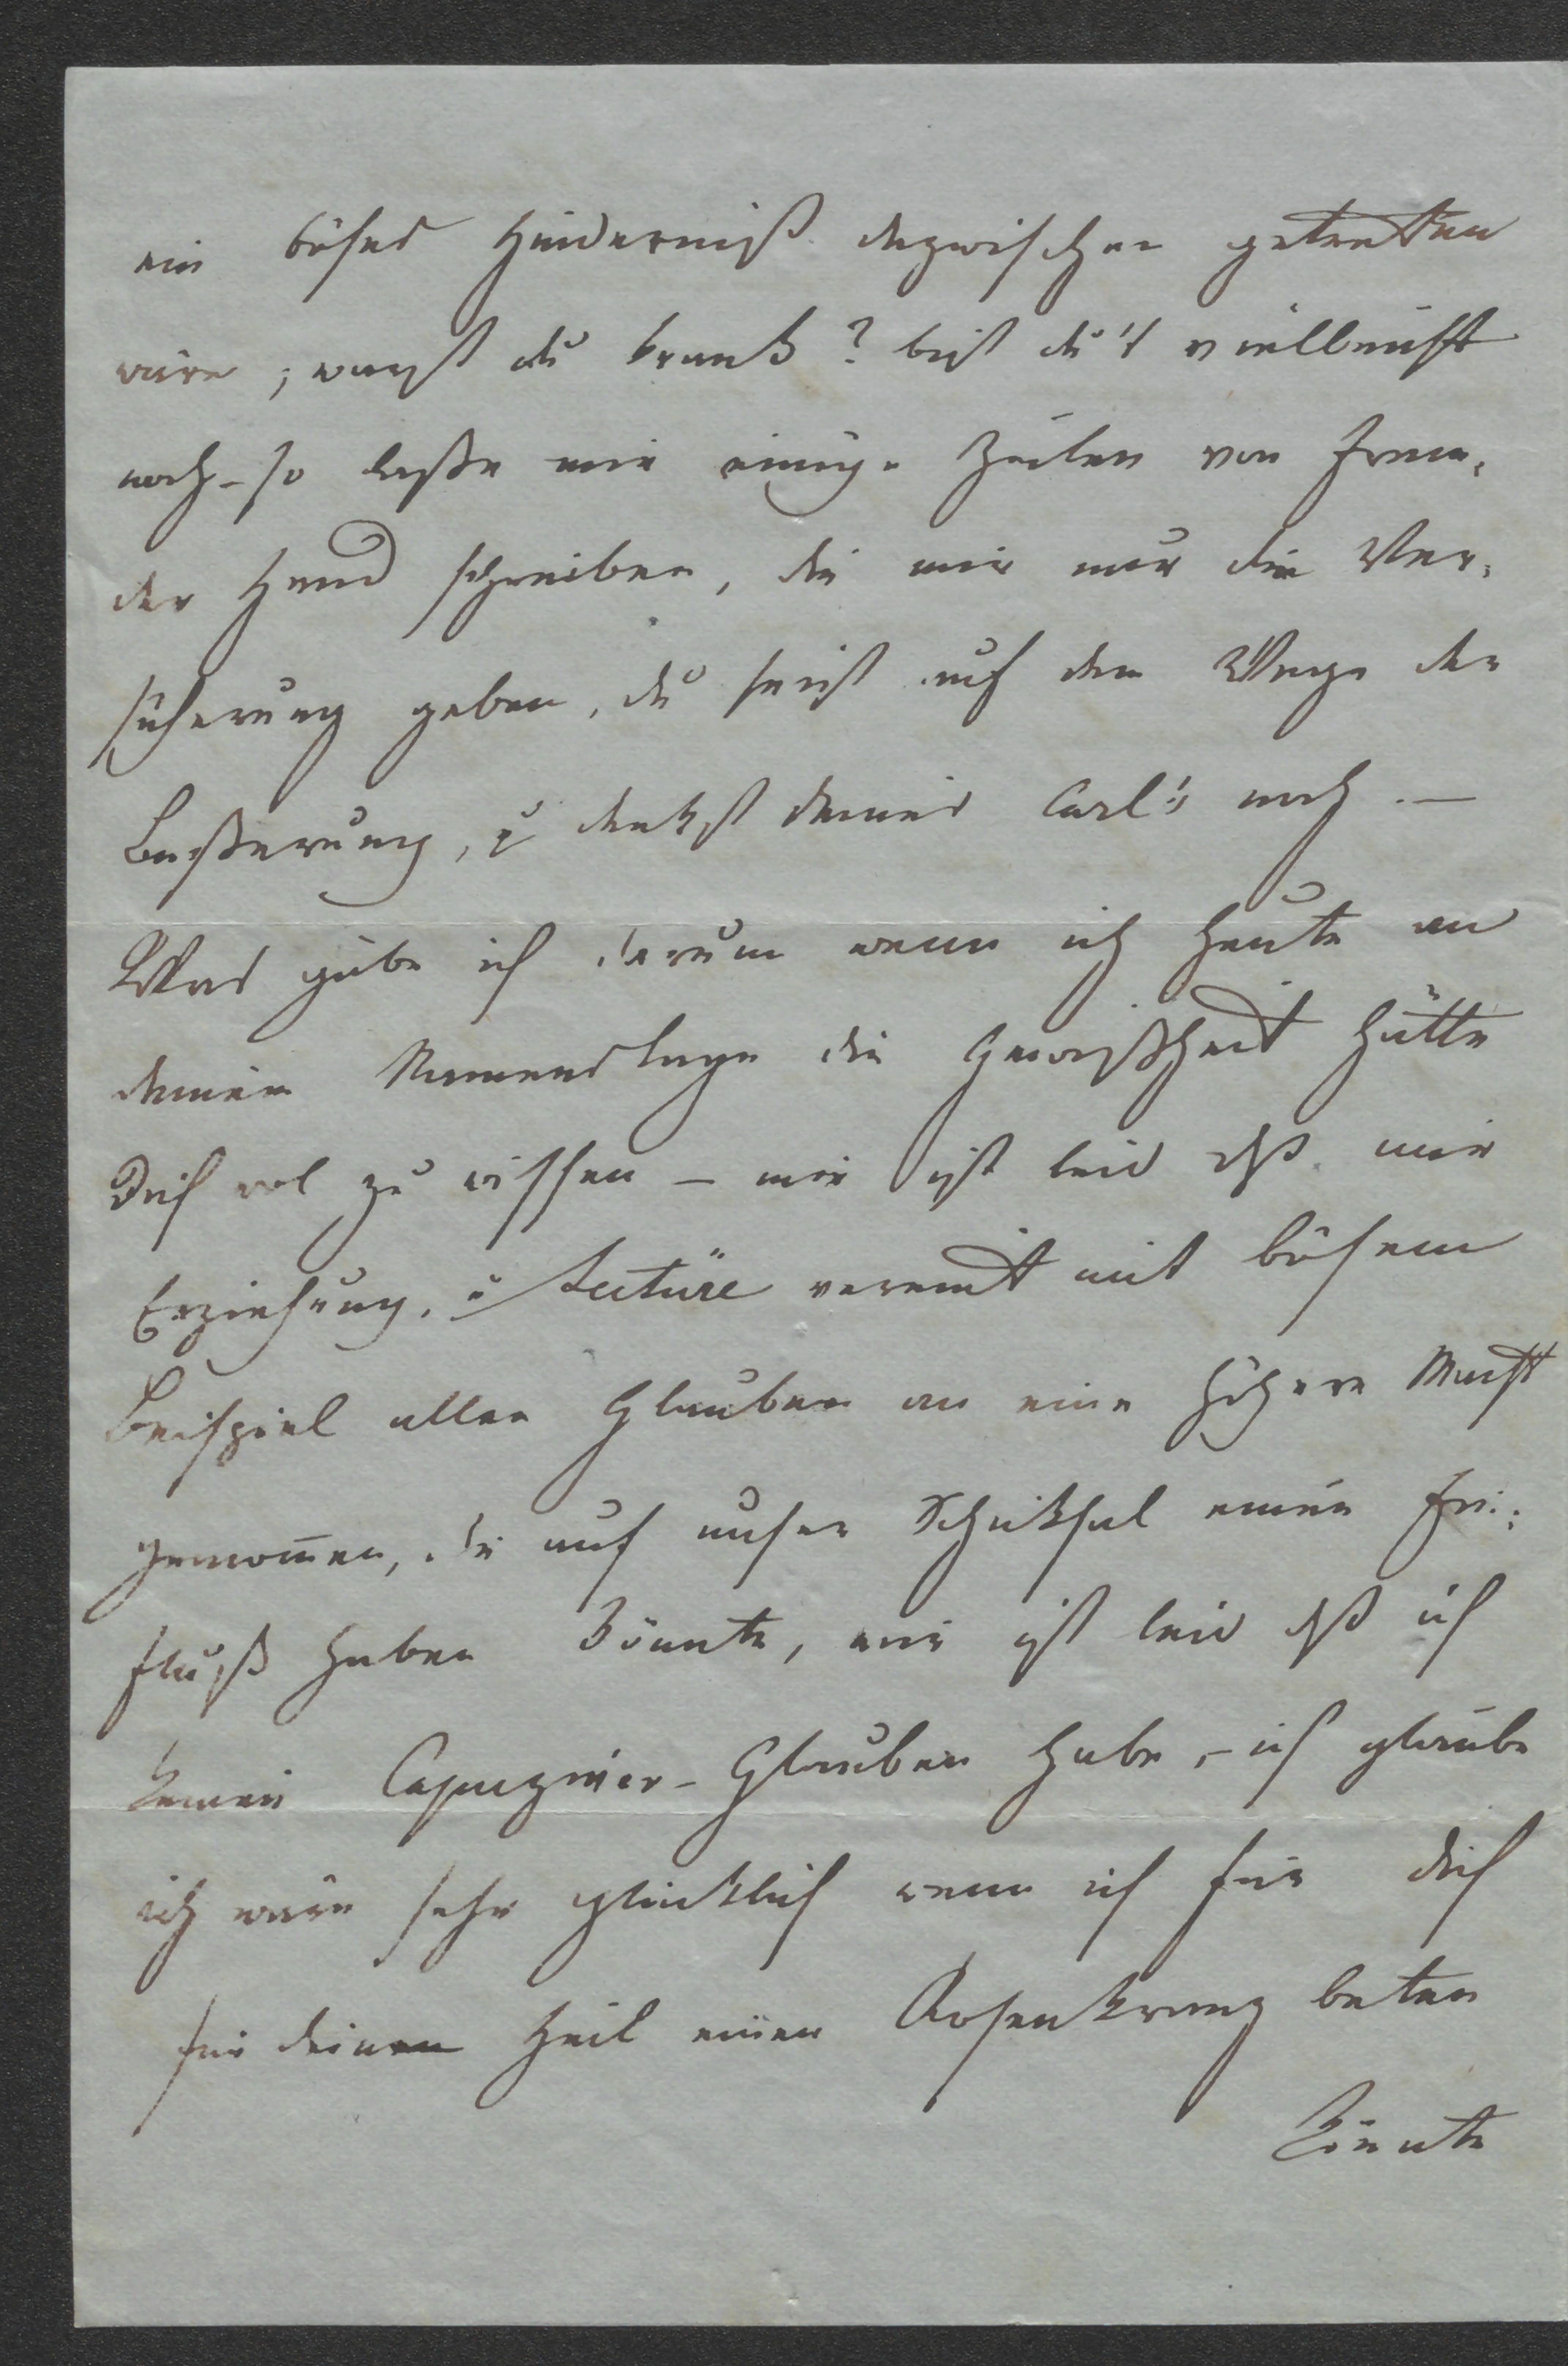 ein böses Hinderniß dazwischen getretten
wäre; warst du krank? bist du's vielleicht
noch – so laße mir einige Zeilen von frem=
der Hand schreiben, die mir nur die Ver=
sicherung geben, du seist auf dem Wege der
Beßerung, u denkst deines Carl's noch. –
Was gäbe ich darum wenn ich heute an
deinem Namenstage die Gewißheit hätte
Dich wol zu wissen – mir ist leid dß mir
Erziehung, u Lectüre vereint mit bösem
Beispiel allen Glauben an eine höhere Macht
genom̅en, die auf unser Schicksal einen Ein=
fluß haben könnte, mir ist leid dß ich
keinen Capuziner-Glauben habe, – ich glaube
ich wäre sehr glücklich wenn ich für dich
für deinen Heil einen Rosenkranz beten
könnte